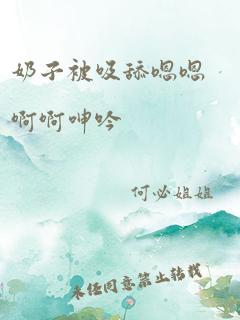 奶子被吸舔嗯嗯
啊啊呻吟
何必姐姐
未经同意禁止转载